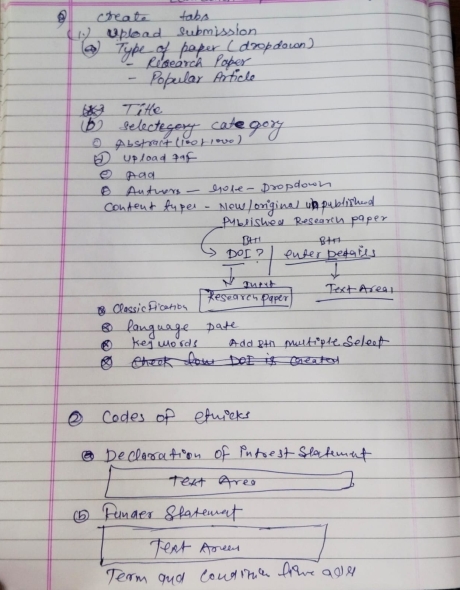 create tabs
(1) Upload submission
(a) Type of paper (dropdown)
- Research Paper
- Popular Article
Title
(b) category
Abstract
(d) Upload pdf
(e) Add
Dropdown
Content types - New/original unpublished
Published Research paper
Btn Btn
DOI? | enter Details
Input
Research paper Text Area
language Date
Keywords Add Btn multiple Select
Check how DOI is created
(2) Codes of ethicks
(a) Declaration of Intrest Statement
Text Area
(b) Funder Statement
Text Area
Term and Condition